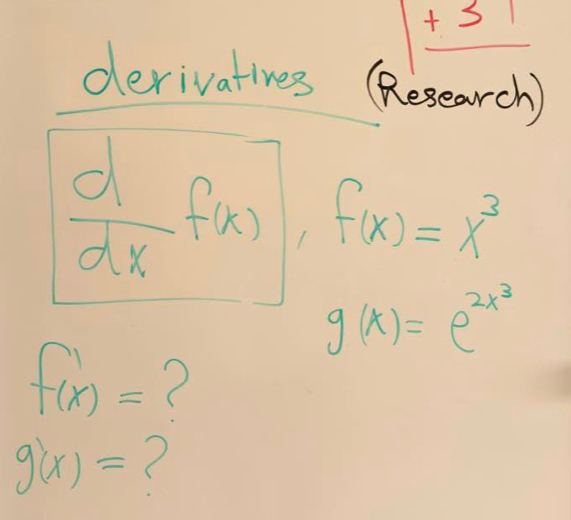 + 3
derivatives (Research)
d/dx f(x), f(x) = x³
g(x) = e^{2x³}
f'(x) = ?
g'(x) = ?